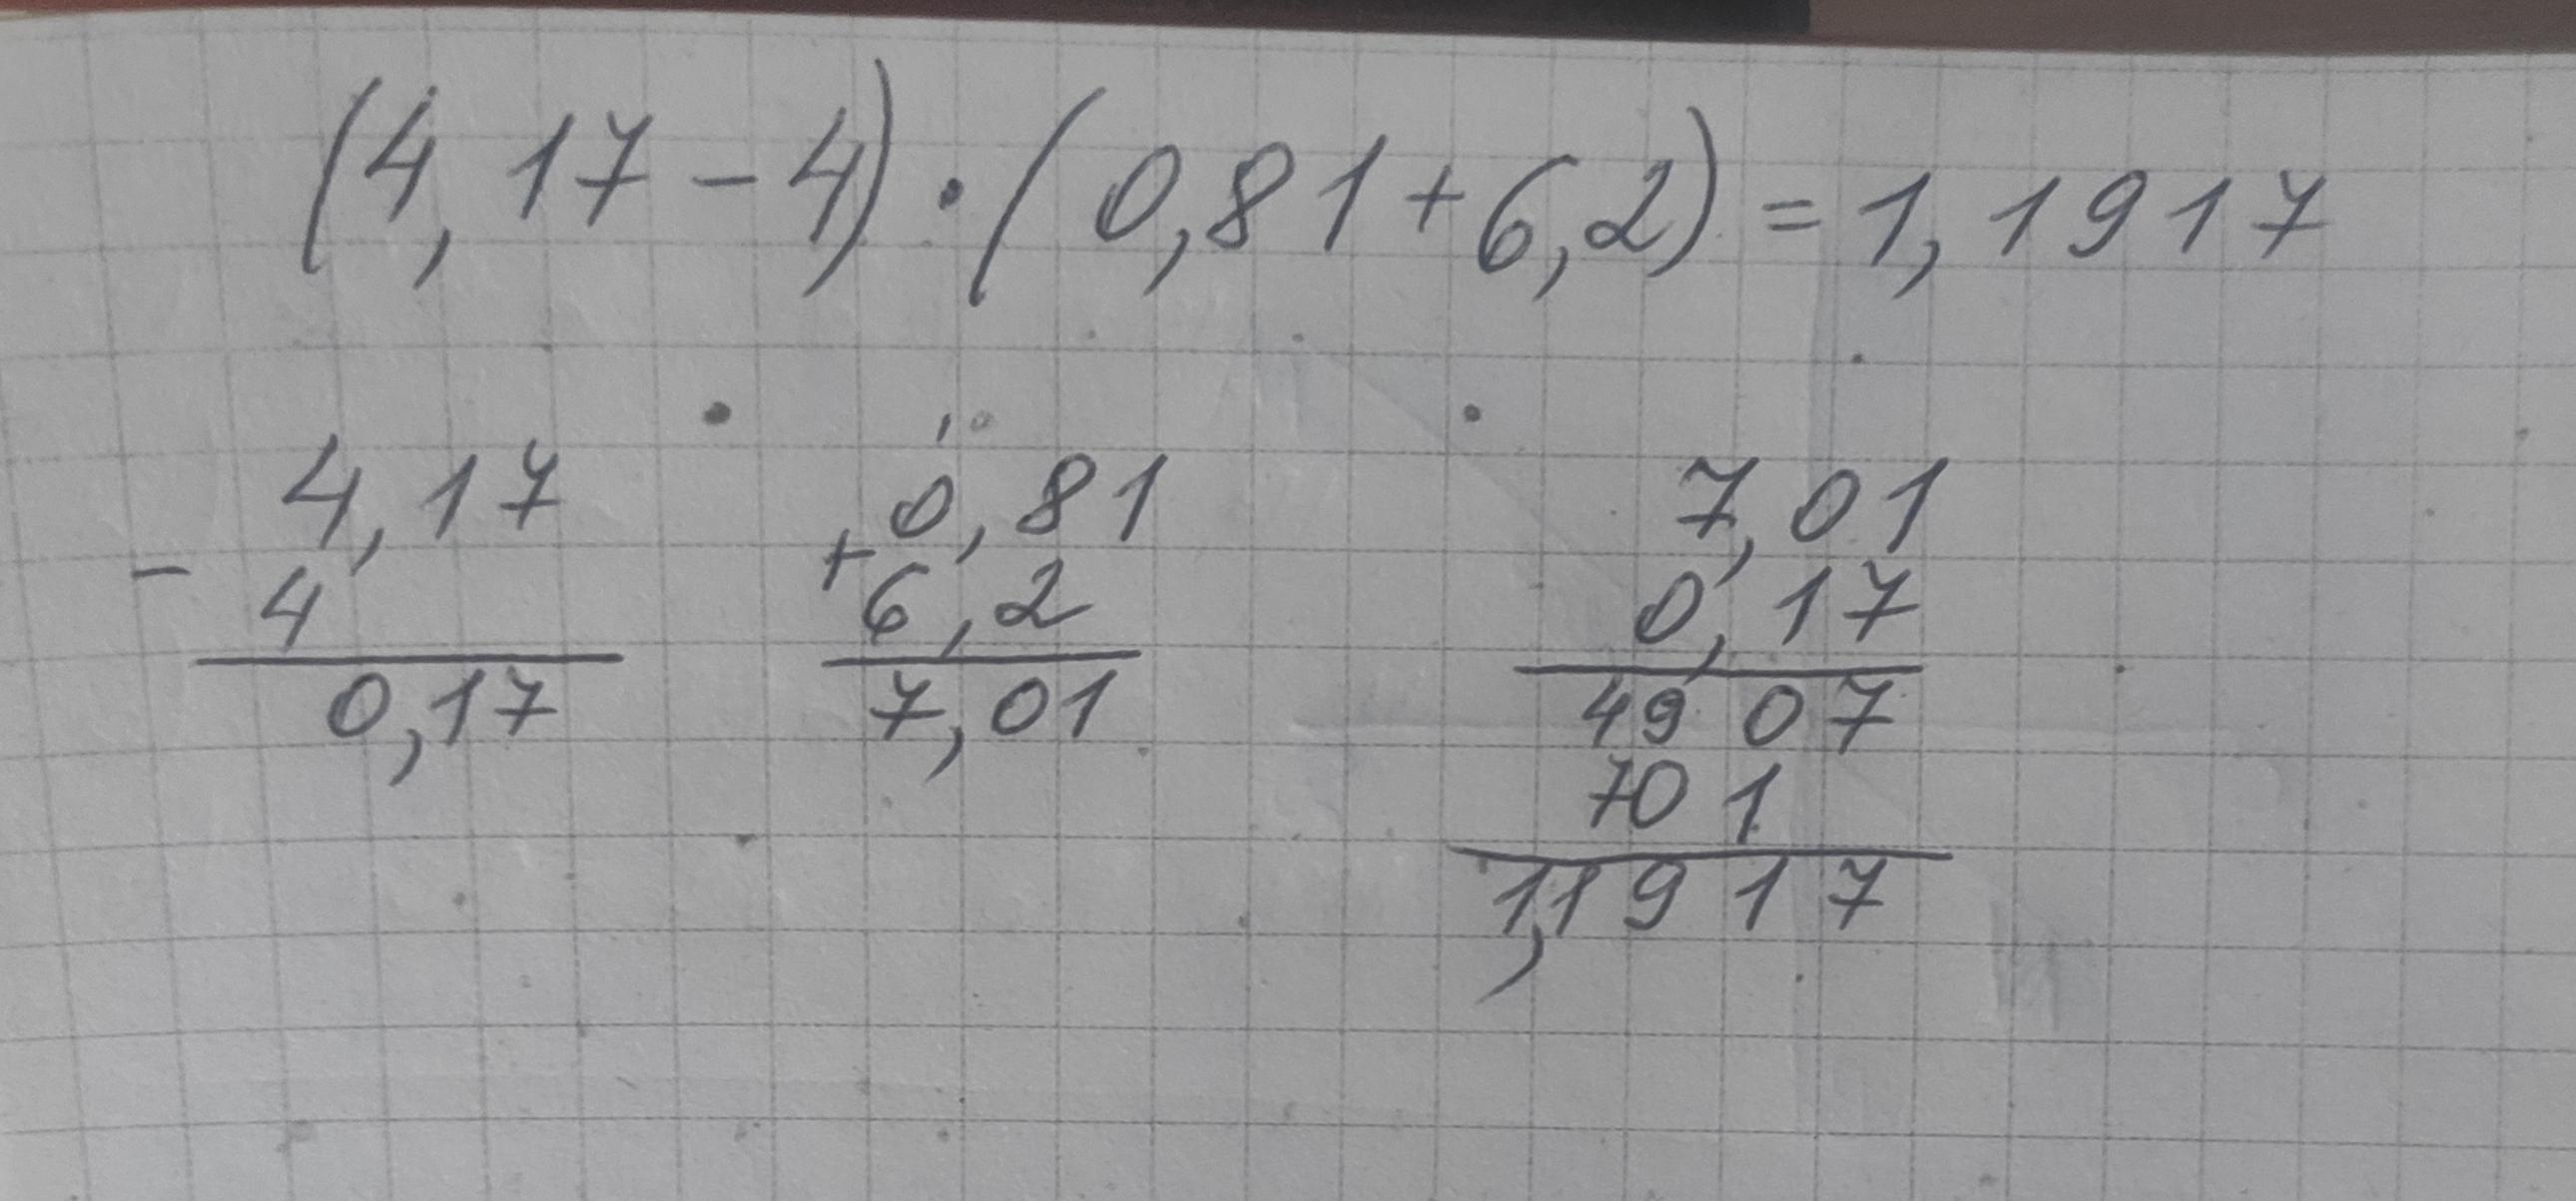 (4,17-4)·(0,81+6,2)=1,1917
4,17
- 4
0,17
0,81
+ 6,2
7,01
7,01
0,17
4907
701
1,1917